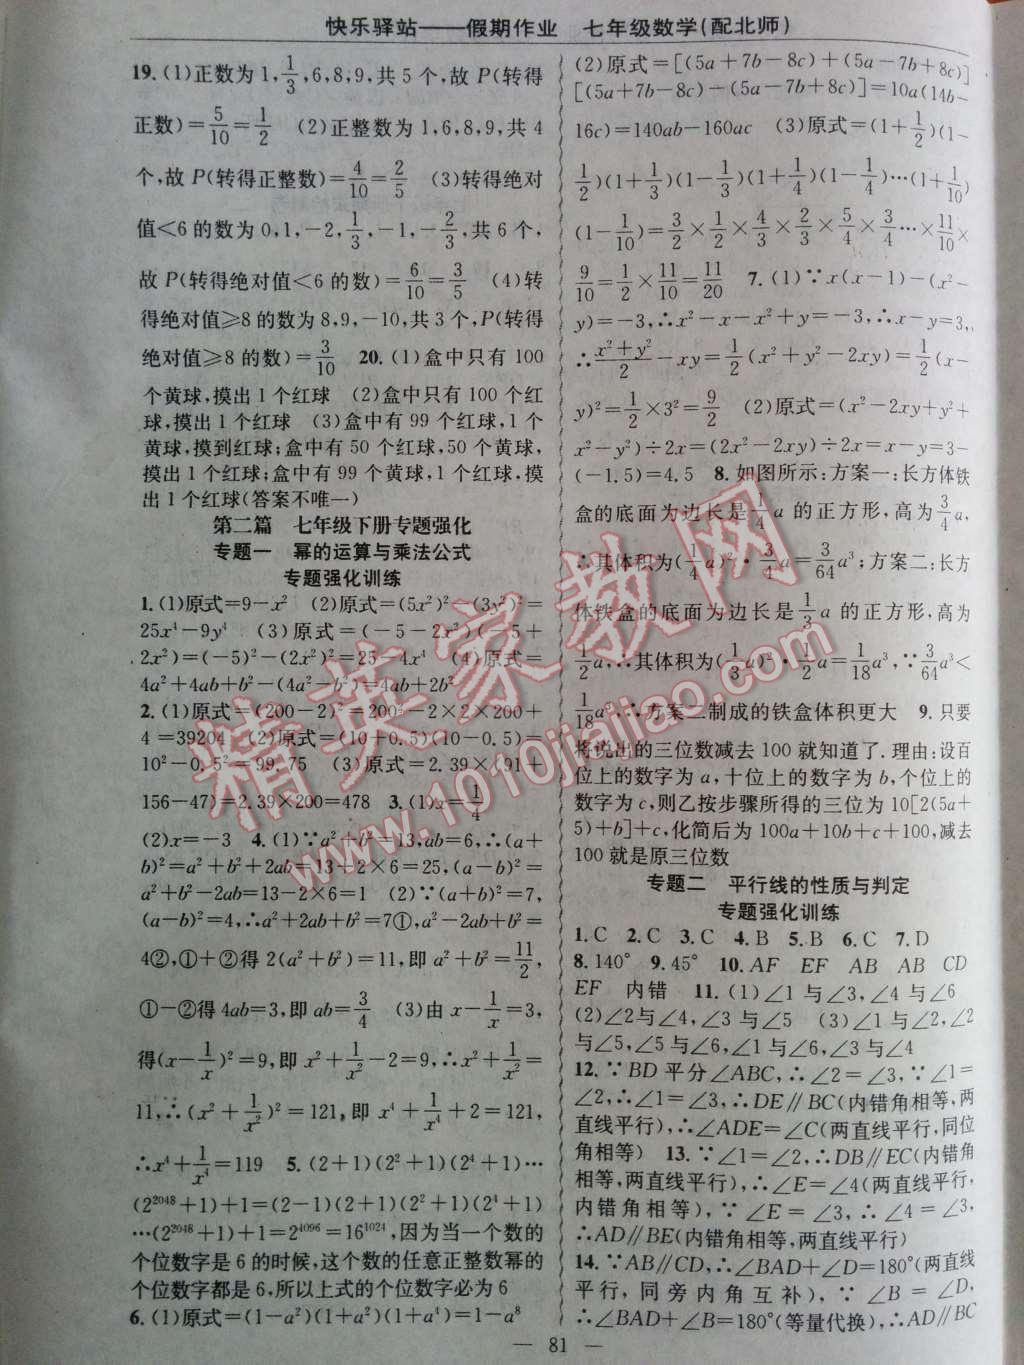 快乐驿站——假期作业 七年级数学(配北师)
19. (1)正数为 1,1/3,6,8,9,共 5 个,故 P(转得
正数)=5/10=1/2 (2)正整数为 1,6,8,9,共 4
个,故 P(转得正整数)=4/10=2/5 (3)转得绝对
值<6 的数为 0,1,-2,1/3,-1,-2/3,共 6 个,
故 P(转得绝对值<6 的数)=6/10=3/5 (4)转
得绝对值≥8 的数为 8,9,-10,共 3 个,P(转得
绝对值≥8 的数)=3/10 20. (1)盒中只有 100
个黄球,摸出 1 个红球 (2)盒中只有 100 个红
球,摸出 1 个红球 (3)盒中有 99 个红球,1 个
黄球,摸到红球;盒中有 50 个红球,50 个黄球,
摸出 1 个红球;盒中有 99 个黄球,1 个红球,摸
出 1 个红球(答案不唯一)
第二篇 七年级下册专题强化
专题一 幂的运算与乘法公式
专题强化训练
1. (1)原式=9-x² (2)原式=(5x²)²-(3y²)²=
25x⁴-9y⁴ (3)原式=(-5-2x²)(-5+
2x²)=(-5)²-(2x²)²=25-4x⁴ (4)原式=
4a²+4ab+b²-(4a²-b²)=4ab+2b²
2. (1)原式=(200-2)²=200²-2×2×200+
4=39204 (2)原式=(10+0.5)(10-0.5)=
10²-0.5²=99.75 (3)原式=2.39×(91+
156-47)=2.39×200=478 3. (1)x=1/4
(2)x=-3 4. (1)∵a²+b²=13,ab=6,∴(a+
b)²=a²+b²+2ab=13+2×6=25,(a-b)²=
a²+b²-2ab=13-2×6=1 (2)∵(a+b)²=7,
(a-b)²=4,∴a²+2ab+b²=7①,a²-2ab+b²=
4②,①+②得 2(a²+b²)=11,即 a²+b²=11/2,
①-②得 4ab=3,即 ab=3/4 (3)由 x-1/x=3,
得(x-1/x)²=9,即 x²+1/x²-2=9,∴x²+1/x²=
11,∴(x²+1/x²)²=121,即 x⁴+1/x⁴+2=121,
∴x⁴+1/x⁴=119 5. (2+1)(2²+1)(2⁴+1)…
(2²⁰⁴⁸+1)+1=(2-1)(2+1)(2²+1)(2⁴+1)
…(2²⁰⁴⁸+1)+1=2⁴⁰⁹⁶=16¹⁰²⁴,因为当一个数的
个位数字是 6 的时候,这个数的任意正整数幂的
个位数字都是 6,所以上式的个位数字必为 6
6. (1)原式=(1-a²)(1+a²)(1+a⁴)=1-a⁸
(2)原式=[(5a+7b-8c)+(5a-7b+8c)]
[(5a+7b-8c)-(5a-7b+8c)]=10a(14b-
16c)=140ab-160ac (3)原式=(1+1/2)(1-
1/2)(1+1/3)(1-1/3)(1+1/4)(1-1/4)…(1+1/10)
(1-1/10)=3/2×1/2×4/3×2/3×5/4×3/4…×11/10×
9/10=1/2×11/10=11/20 7. (1)∵x(x-1)-(x²-
y)=-3,∴x²-x-x²+y=-3,∴x-y=3,
∴(x²+y²)/2-xy=1/2(x²+y²-2xy)=1/2(x-
y)²=1/2×3²=9/2 (2)原式=(x²-2xy+y²+
x²-y²)÷2x=(2x²-2xy)÷2x=x-y=3-
(-1.5)=4.5 8. 如图所示:方案一:长方体铁
盒的底面为边长是 1/4 a 的正方形,高为 3/4 a,
∴其体积为(1/4 a)²·3/4 a=3/64 a³;方案二:长方
体铁盒的底面为边长是 1/3 a 的正方形,高为
1/2 a,∴其体积为(1/3 a)²·1/2 a=1/18 a³,∵3/64 a³<
1/18 a³,∴方案二制成的铁盒体积更大 9. 只要
将说出的三位数减去 100 就知道了. 理由:设百
位上的数字为 a,十位上的数字为 b,个位上的
数字为 c,则乙按步骤所得的三位为 10[2(5a+
5)+b]+c,化简后为 100a+10b+c+100,减去
100 就是原三位数
专题二 平行线的性质与判定
专题强化训练
1. C 2. C 3. C 4. B 5. B 6. C 7. D
8. 140° 9. 45° 10. AF EF AB AB CD
EF 内错 11. (1)∠1 与∠3,∠4 与∠6
(2)∠2 与∠4,∠3 与∠5 (3)∠1 与∠2,∠2
与∠5,∠5 与∠6,∠1 与∠6,∠3 与∠4
12. ∵BD 平分∠ABC,∴∠2=∠3,∵∠1=
∠2,∴∠1=∠3,∴DE∥BC(内错角相等,两
直线平行),∴∠ADE=∠C(两直线平行,同位
角相等) 13. ∵∠1=∠2,∴DB∥EC(内错
角相等,两直线平行),∴∠E=∠4(两直线平行,
内错角相等),∵∠E=∠3,∴∠4=∠3,
∴AD∥BE(内错角相等,两直线平行)
14. ∵AB∥CD,∴∠BAD+∠D=180°(两直线
平行,同旁内角互补),∵∠B=∠D,
∴∠BAD+∠B=180°(等量代换),∴AD∥BC
— 81 —
精英家教网
www.1010jiajiao.com